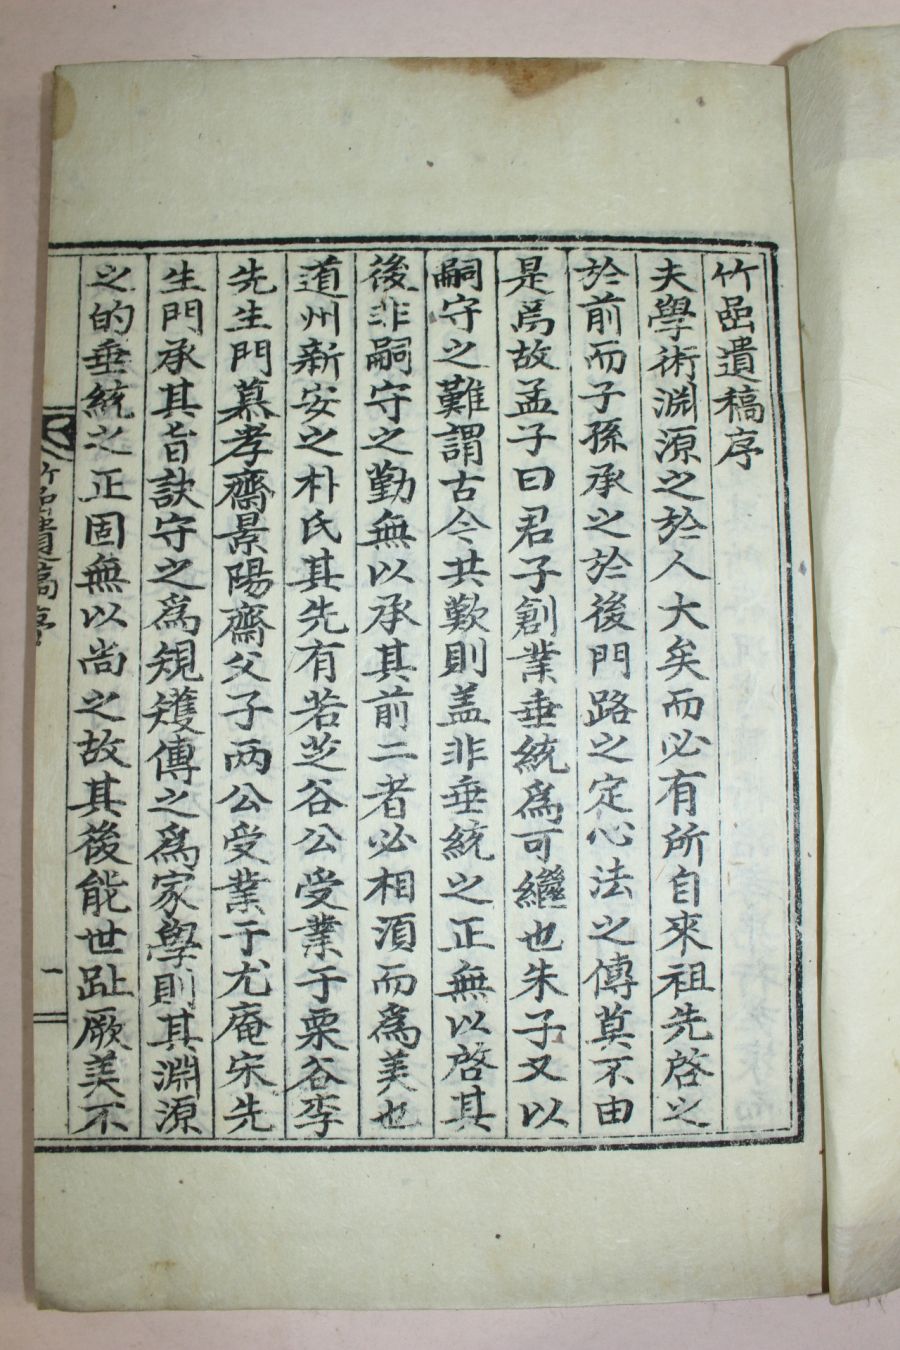 竹嵒遺稿序
夫學術淵源之於人大矣而必有所自來祖先啓之
於前而子孫承之於後門路之定心法之傳莫不由
是爲故孟子曰君子創業垂統爲可繼也朱子又以
嗣守之難謂古今共歎則盖非垂統之正無以啓其
後非嗣守之勤無以承其前二者必相須而爲美也
道州新安之朴氏其先有若芝谷公受業于栗谷李
先生門慕孝齋景陽齋父子两公受業于尤庵宋先
生門承其旨訣守之爲規矱傳之爲家學則其淵源
之的垂統之正固無以尚之故其後能世趾厥美不
竹嵒遺稿序
一